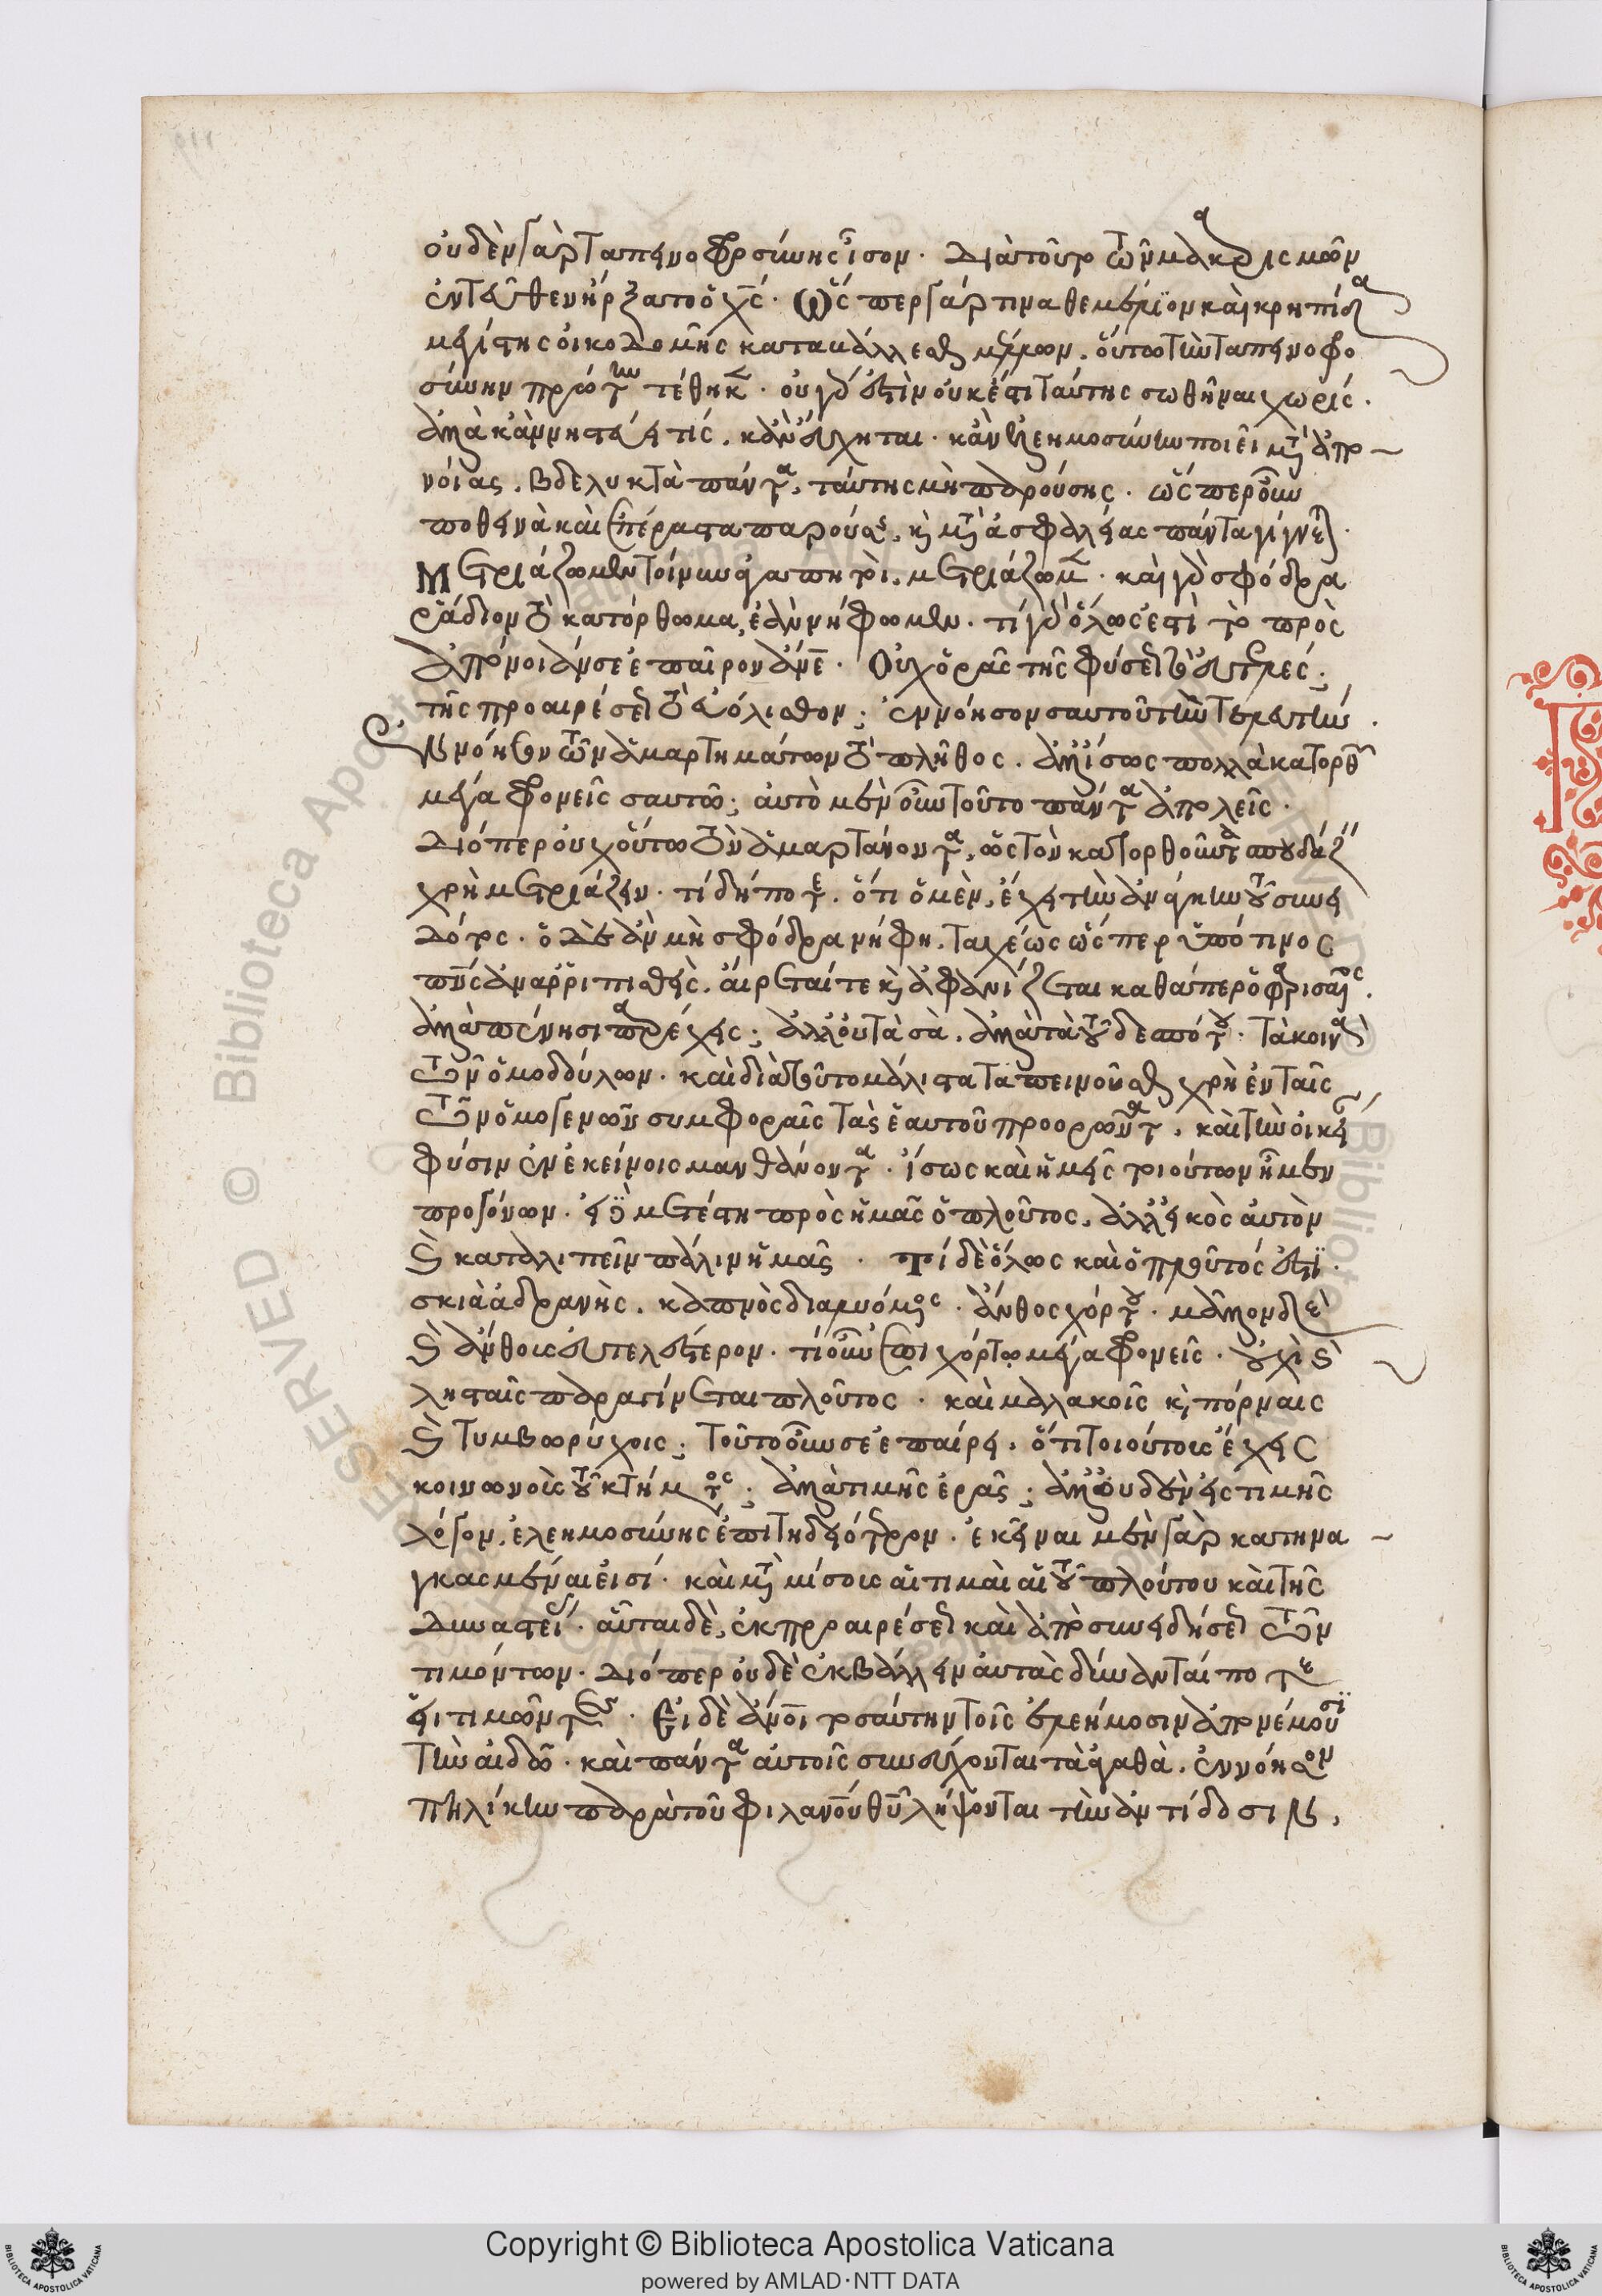 οὐδὲν γὰρ ταπεινοφροσύνης ἴσον. Διὰ τοῦτο τῶν μακαρισμῶν
ἐντεῦθεν ἤρξατο ὁ χς. Ὥσπερ γάρ τινα θεμέλιον καὶ κρηπῖδα
μεγίστης οἰκοδομῆς καταβάλλεσθαι μέλλων. οὕτω τὴν ταπεινοφρο
σύνην πρώτην τέθηκεν. οὐ γὰρ ἔστιν οὐκ ἔστι ταύτης σωθῆναι χωρίς.
ἀλλὰ κἂν νηστεύῃ τίς. κἂν εὔχηται. κἂν ἐλεημοσύνην ποιεῖ μετὰ ἀπο
νοίας. βδελυκτὰ πάντα, ταύτης μὴ παρούσης. ὥσπερ οὖν
ποθεινὰ καὶ ἐπέραστα παρούσης, καὶ μετὰ ἀσφαλείας πάντα γίνεται.
Μετριάζωμεν τοίνυν ἀγαπητοὶ. μετριάζωμεν. καὶ γὰρ σφόδρα
ῥάδιον τὸ κατόρθωμα, ἐὰν νήφωμεν. τί γὰρ ὅλως ἐστὶ τὸ πρὸς
ἀπόνοιάν σε ἐπαῖρον ἄνε. Οὐχ ὁρᾶς τῆς φύσεως τὸ εὐτελές;
τῆς προαιρέσεως τὸ εὐόλισθον; ἐννόησον σαυτοῦ τὴν τελευτήν.
ἐννόησον τῶν ἁμαρτημάτων τὸ πλῆθος. ἀλλ' ἴσως πολλὰ κατορθῶν
μέγα φρονεῖς σαυτῷ; αὐτὸ μὲν οὖν τοῦτο πάντα ἀπολεῖς.
Διόπερ οὐχ οὕτω τὸν ἁμαρτάνοντα, ὡς τὸν κατορθοῦντα σπουδάζειν
χρὴ μετριάζειν. τί δήποτε. ὅτι ὁ μὲν, ἔχει τὴν ἀνάγκην τοῦ συνει
δότος. ὁ δὲ ἂν μὴ σφόδρα νήφῃ. ταχέως ὥσπερ ὑπό τινος
πνς ἀναρριπισθεὶς. αἴρεταί τε καὶ ἀφανίζεται καθάπερ ὁ φαρισαῖος.
ἀλλὰ πένησι παρέχεις; ἀλλ' οὐ τὰ σὰ. ἀλλὰ τὰ τοῦ δεσπότου. τὰ κοινὰ
τῶν ὁμοδούλων. καὶ διὰ τοῦτο μάλιστα ταπεινοῦσθαι χρὴ ἐν ταῖς
τῶν ὁμογενῶν συμφοραῖς τὰς ἑαυτοῦ προορῶντα. καὶ τὴν οἰκείαν
φύσιν ἐν ἐκείνοις μανθάνοντα. ἴσως καὶ ἡμεῖς τοιούτων ἦμεν
προγόνων. εἰ δὲ μετέστη πρὸς ἡμᾶς ὁ πλοῦτος. ἀλλ' εἰκὸς αὐτὸν
καὶ καταλιπεῖν πάλιν ἡμᾶς. Τί δὲ ὅλως καὶ ὁ πλοῦτός ἐστι.
σκιὰ ἀδρανὴς. καπνὸς διαλυόμενος. ἄνθος χόρτου. μᾶλλον δὲ
καὶ ἄνθους εὐτελέστερον. τί οὖν ἐπὶ χόρτῳ μέγα φρονεῖς. οὐχὶ καὶ
λῃσταῖς παραγίνεται πλοῦτος. καὶ μαλακοῖς καὶ πόρναις
καὶ τυμβωρύχοις; τοῦτο οὖν σε ἐπαίρει. ὅτι τοιούτους ἔχεις
κοινωνοὺς τοῦ κτήματος; ἀλλὰ τιμῆς ἐρᾶς; ἀλλ' οὐδὲν εἰς τιμῆς
λόγον, ἐλεημοσύνης ἐπιτηδειότερον. ἐκεῖναι μὲν γὰρ κατηνα
γκασμέναι εἰσί. καὶ μετὰ μίσους αἱ τιμαὶ αἱ τοῦ πλούτου καὶ τῆς
δυναστείας. αὗται δὲ, ἐκ προαιρέσεως καὶ ἀπὸ συνειδήσεως τῶν
τιμώντων. Διόπερ οὐδὲ ἐκβάλλειν αὐτὰς δύνανταί ποτε
οἱ τιμῶντες. Εἰ δὲ ἄνοι τοσαύτην τοῖς ἐλεήμοσιν ἀπονέμουσι
τὴν αἰδῶ. καὶ πάντα αὐτοῖς συνεύχονται τὰ ἀγαθὰ. ἐννόησον
πηλίκην παρὰ τοῦ φιλανου θυ λήψονται τὴν ἀντίδοσιν,